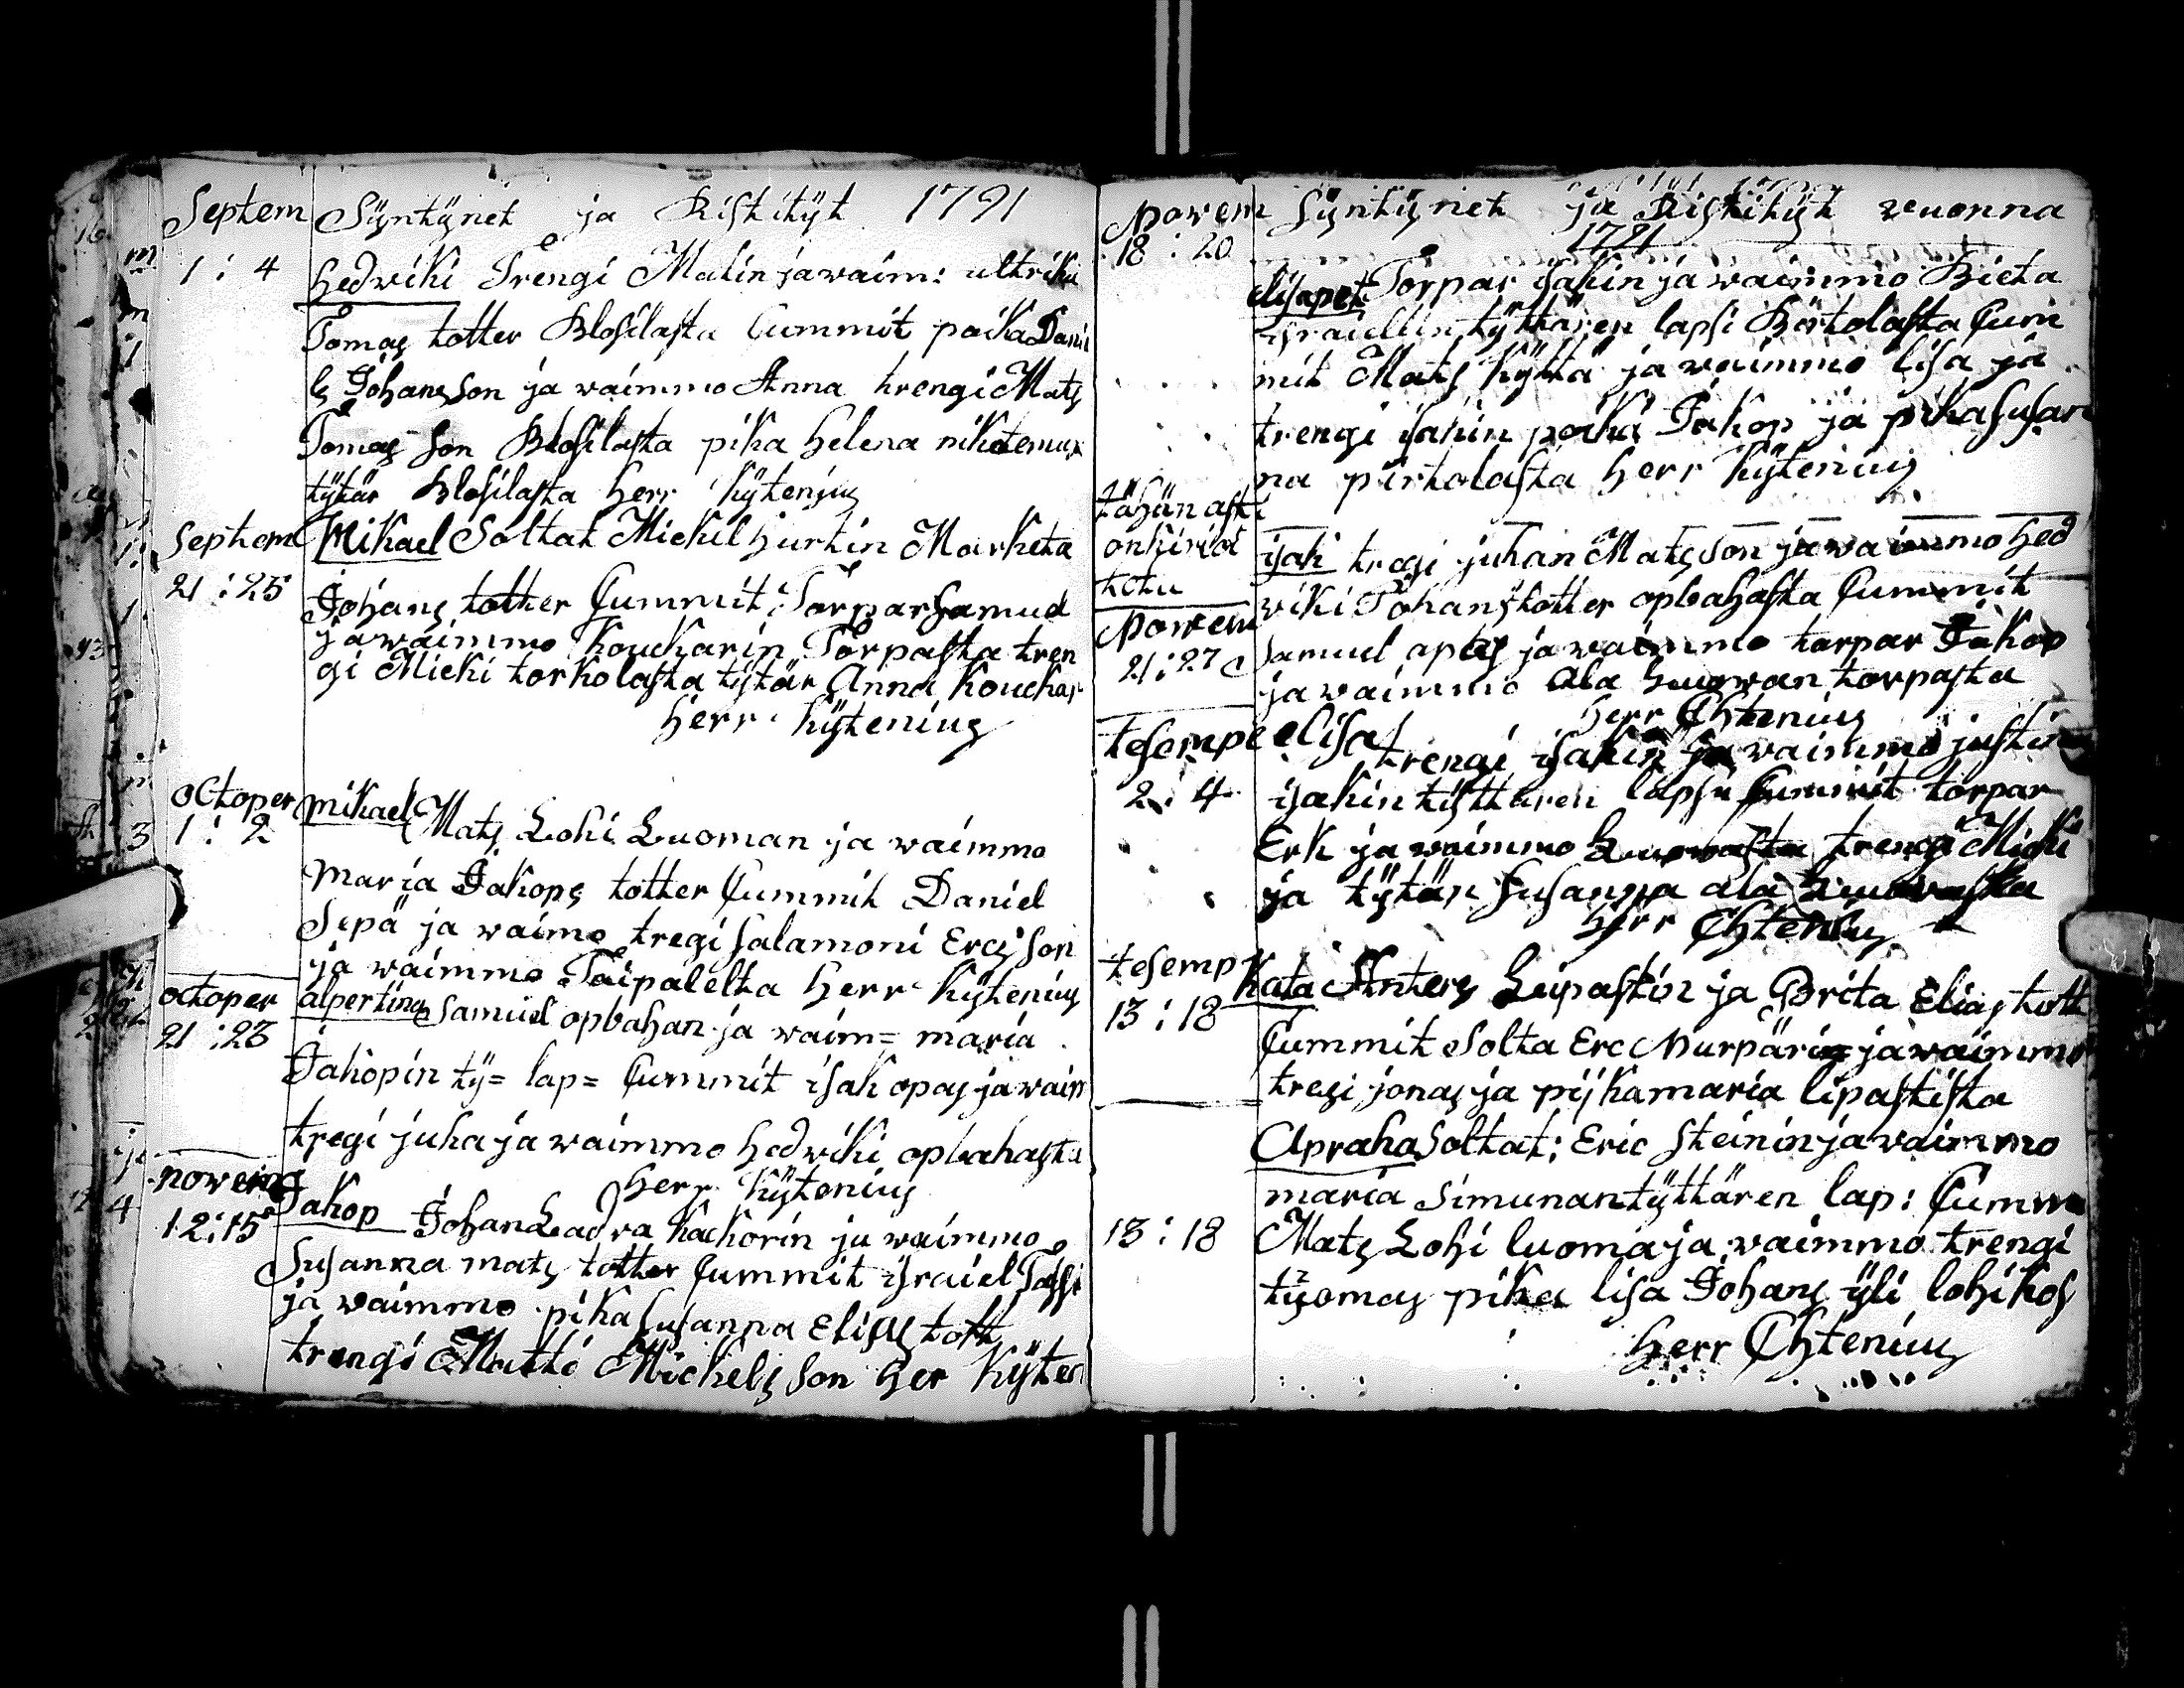 Septem Syntynet ja Kistityt 1791
1 : 4 hedviki Trengi Matin ja waim: ultrika
Tomas totter Blosilasta Cummit poika Dani
ls Johansson ja waimmo Anna trengi Mats
Tomas Son Blosilasta pika helena nikotemux
tytär Blosilasta herr kytenius
Septem Mikael Soltat Mickil hurtin Marketa
21 : 25 Johans totter Cummit: Torpar Samuel
ja waimmo Kouckarin Torpasta tren
gi Micki torkolasta tytär Anna kouckar
herr kytenius
octoper mikael Mats Lohi Luoman ja waimmo
1 : 2
Maria Jakops totter Cummit Daniel
Sepä ja waimo tregi Salamoni Ercs Son
ja waimmo Taipalelta herr kytenius
octoper alpertina Samuel opbahan ja waim= maria
21 : 23
Jakopin ty= lap= Cummit isak opas ja waim
tregi juha ja waimmo hedwiki opbahasta
herr kytenius
nowem Jakop Johan Ladva kackorin ja waimmo
12 : 15
Susanna mats totter Cummit israiel Passi
ja waimmo pika Susanna Elias tott
trengi Matti Mickels Son her kyten
Nowem Syntynet ja Kistityt wuonna
18 : 20 1791
elisapet Torpar isakin ja waimmo Brieta
israiellin tyttären lapsi Börtolasta Cum
mit Mats kyttä ja waimmo lisa ja
trengi isakin poika Jakop ja pika Susan
na pirtolasta herr kytenius
tähän asti
on kirioi
tettu
isak tregi juhan Matsson ja waimmo hed
wiki Johans totter opbahasta Cummit
Nowem
21 : 27 Samuel opas ja waimmo torpar Jakop
ja waimmo ala Luowan torpasta
herr Chtenius
tesempe elisa trengi isakin ja waimmo justin
2 : 4 isakin tyttären lapsi Cummit torpar
Erk ja waimmo trengi Micki
ja tytär Susanna ala
herr Chtenius
tesemp Kata Anters Leipastin ja Brita Elias tott
13 : 18
Cummit Solta Erc Nurpärin ja waimmo
tregi jonas ja pijka maria lipastista
Apraha Soltat: Eric Steinin ja waimmo
maria Simunan tyttären lap: Cumm
13 : 18 Mats Lohi luoma ja waimmo trengi
tyomas pika lisa Johans yli lohikos
herr Chtenius